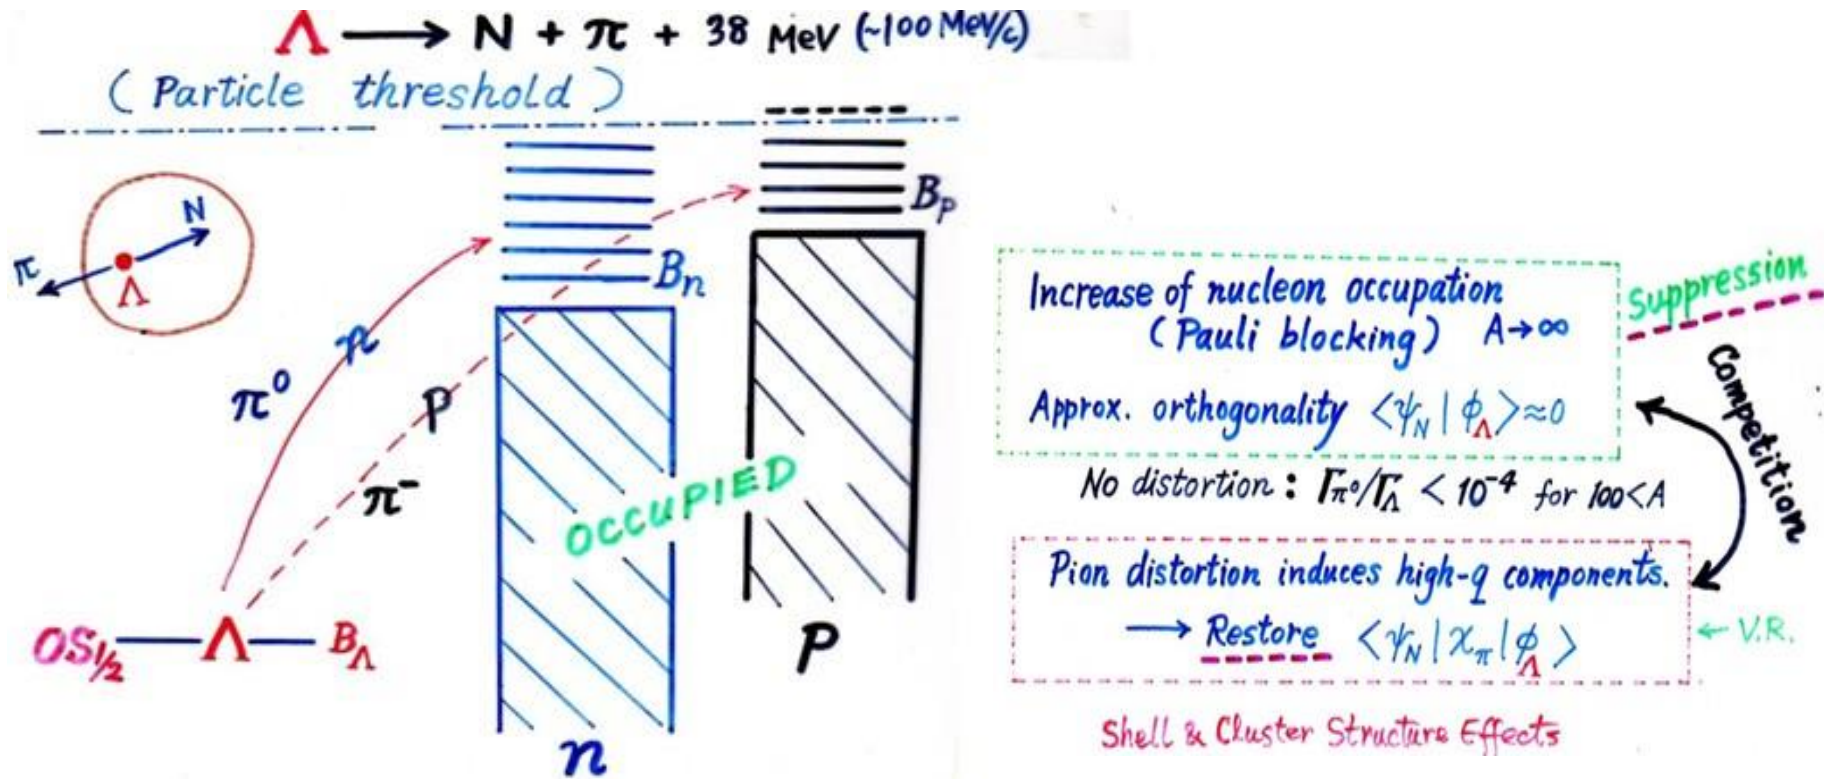 Λ → N + π + 38 MeV (~100 MeV/c)
( Particle threshold )
N
π
Λ
Bₙ
Bₚ
π⁰
n
p
π⁻
OCCUPIED
0S1/2
Λ
B_Λ
n
p
Increase of nucleon occupation
(Pauli blocking) A→∞
Approx. orthogonality <ψ_N | ϕ_Λ> ≈ 0
Suppression
Competition
No distortion : Γπ⁰/Γ_Λ < 10⁻⁴ for 100<A
Pion distortion induces high-q components.
→ Restore <ψ_N | χ_π | ϕ_Λ>
← V.R.
Shell & Cluster Structure Effects